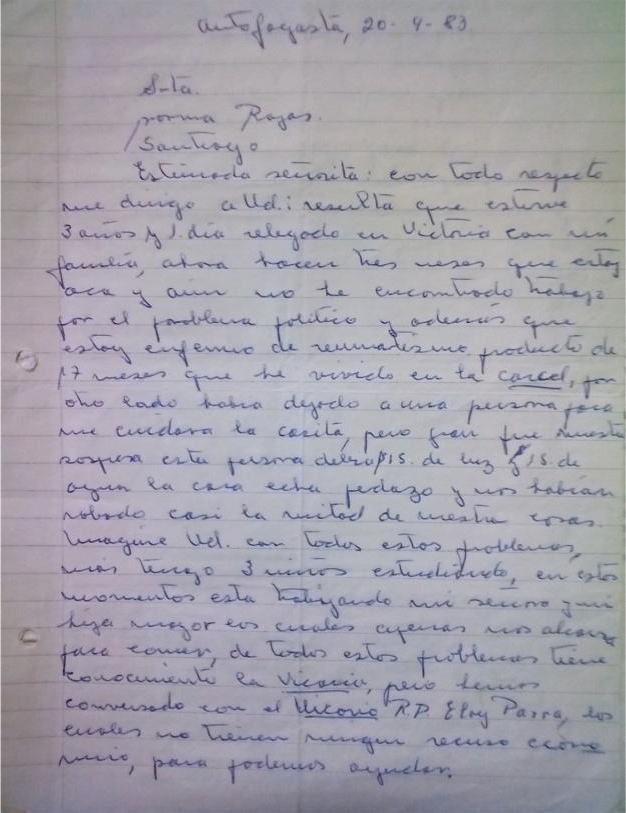 Antofagasta, 20-4-83
S-ta.
norma Rojas.
Santiago
Estimada señorita: con todo respeto
me dirijo a Ud.: resulta que estuve
3 años y 1 día relegado en Victoria con mi
familia, ahora hacen tres meses que estoy
aca y aún no he encontrado trabajo
por el problema político y además que
estoy enfermo de reumatismo producto de
17 meses que he vivido en la carcel, por
otro lado había dejado a una persona para
me cuidara la casita, pero gran fue nuestra
sorpresa esta persona debia $15. de luz y 15. de
agua la casa echa pedazo y nos habían
robado casi la mitad de nuestra cosas.
Imagine Ud. con todos estos problemas,
más tengo 3 niños estudiando, en estos
momentos esta trabajando mi señora y mi
hija mayor los cuales apenas nos alcanza
para comer, de todos estos problemas tiene
conocimiento la Vicaria, pero hemos
conversado con el Vicario R.P. Eloy Parra, los
cuales no tienen ningun recurso
para podernos ayudar.